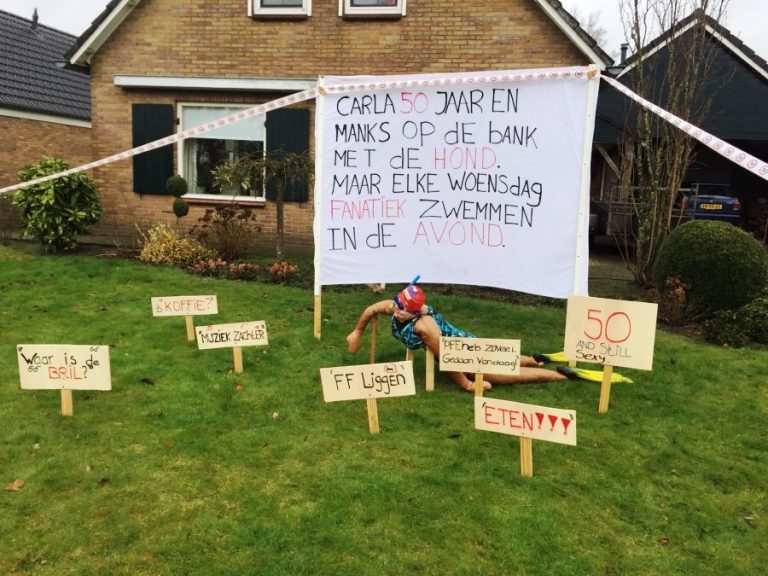 CARLA 50 JAAR EN
MANKS OP de BANK
MET de HOND.
MAAR ELKE WOENSdAg
FANATIEK ZWEMMEN
IN de AVOND.
"KOFFIE?"
"MUZIEK ZACHTER"
"Waar is de
BRIL?"
FF LIggEN
"PFF heb zoveel
Gedaan Vandaag!
50
AND STILL
Sexy...
"ETEN!!!"